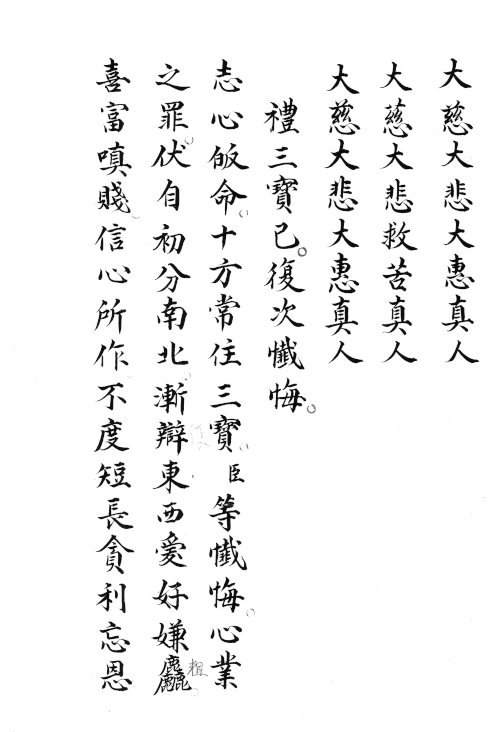 大慈大悲大惠真人
大慈大悲救苦真人
大慈大悲大惠真人
禮三寶已。復次懺悔。
志心皈命。十方常住三寶。臣等懺悔。心業
之罪。伏自初分南北。漸辯東西愛好嫌麤粗
喜富嗔賤。信心所作不度短長貪利忘恩